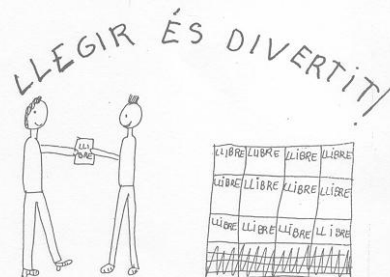 LLEGIR ÉS DIVERTIT!
LLI
BRE
LLIBRE LLIBRE LLIBRE LLIBRE
LLIBRE LLIBRE LLIBRE LLIBRE
LLIBRE LLIBRE LLIBRE LLIBRE